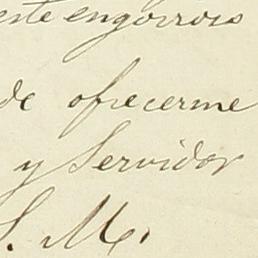 este engorroso
de ofrecerme
y Servidor
S. M.